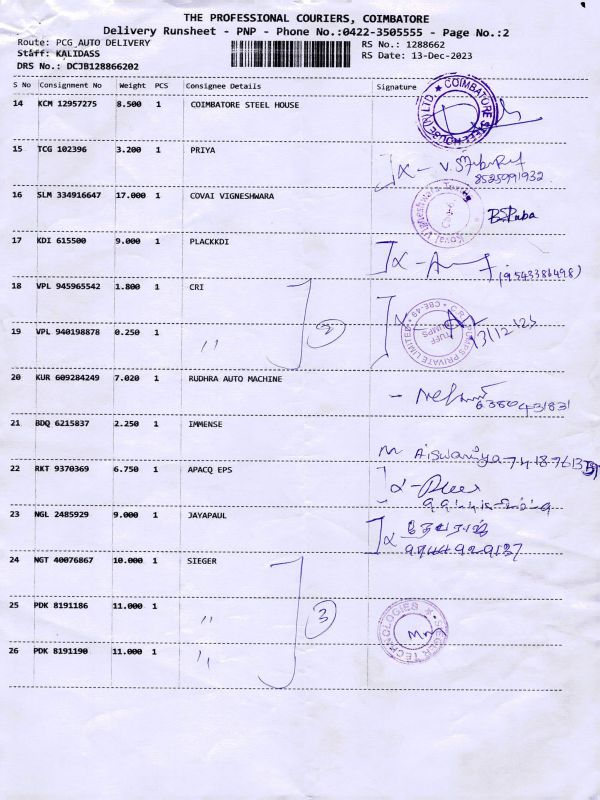 THE PROFESSIONAL COURIERS, COIMBATORE
Delivery Runsheet - PNP - Phone No.:0422-3505555 - Page No.:2
Route: PCG AUTO DELIVERY RS No.: 1288662
Staff: KALIDASS RS Date: 13-Dec-2023
DRS No.: DCJB128866202
S No Consignment No Weight PCS Consignee Details Signature
14 KCM 12957275 8.500 1 COIMBATORE STEEL HOUSE
COIMBATORE STEEL HOUSE (I) LTD
15 TCG 102396 3.200 1 PRIYA
8525991932
16 SLM 334916647 17.000 1 COVAI VIGNESHWARA
17 KDI 615500 9.000 1 PLACKKDI
18 VPL 945965542 1.800 1 CRI
2
13/12/23
19 VPL 940198878 0.250 1 "
20 KUR 609284249 7.020 1 RUDHRA AUTO MACHINE
21 BDQ 6215837 2.250 1 IMMENSE
Aiswariya
22 RKT 9370369 6.750 1 APACQ EPS
23 NGL 2485929 9.000 1 JAYAPAUL
24 NGT 40076867 10.000 1 SIEGER
25 PDK 8191186 11.000 1 "
3
SIEGER TECHNOLOGIES
26 PDK 8191190 11.000 1 "